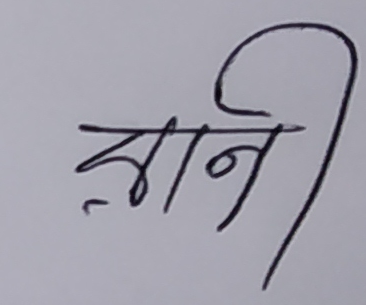 ज्ञानी